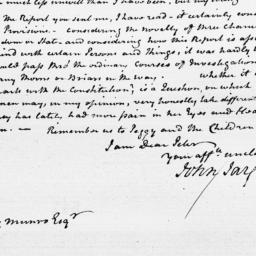 much less unwell than I have been, but my
the Report you sent me, I have read - it certainly con
Provisions. Considering the novelty of
dom on that - and considering how this Report is
and with certain Persons and Things, it was hardly
ould pass thro the ordinary Courses of Investigation
ny Thorns or Briars in the way. Whether it
with the Constitution? is a Question, on which
men may, in my opinion, very honestly take different
ey has late, had more pain in her Eyes and Head
— Remember us to Peggy and the Children
I am Dear Peter
Your affte uncle
John Jay
Munro Esqr